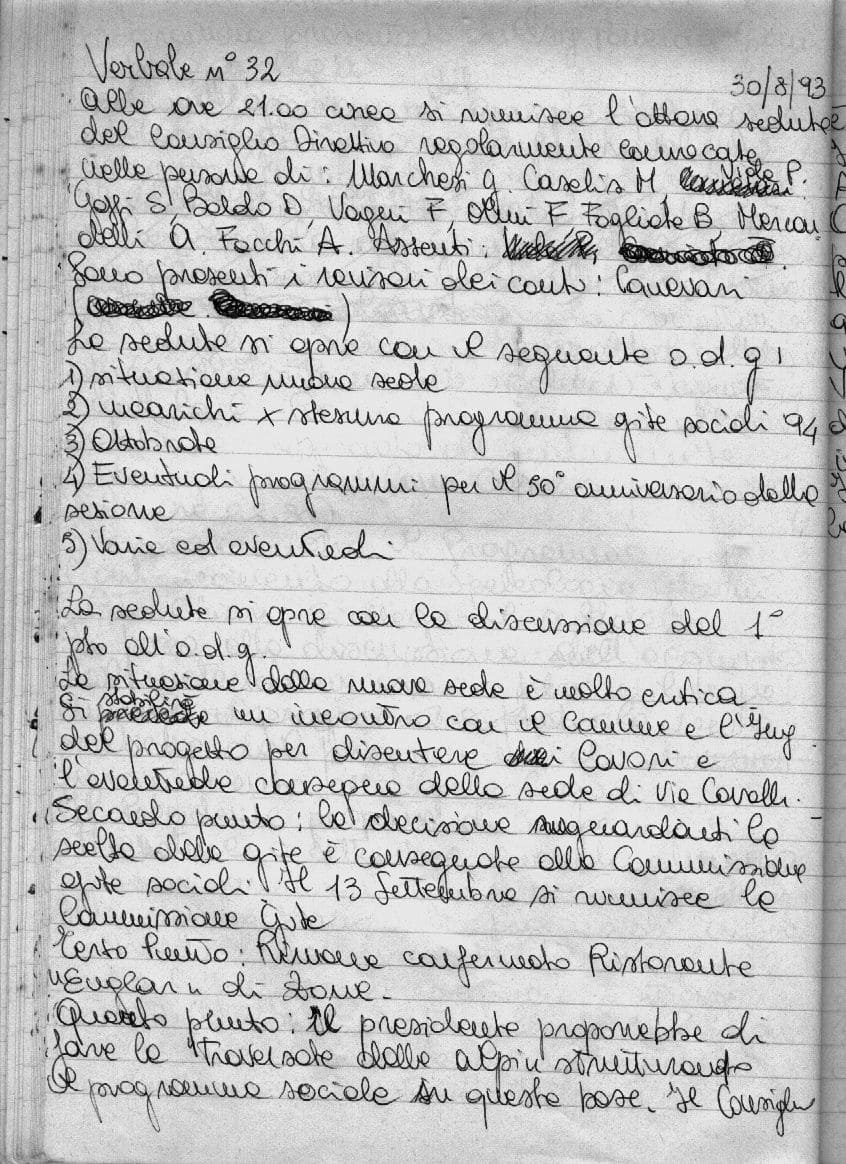 Verbale n° 32
30/8/93
Alle ore 21.00 circa si riunisce l'ottava seduta
del Consiglio Direttivo regolarmente convocata
nelle persone di: Marchesi G. Caselis M, Viola P.
Goffi S, Baldo D, Vageri F, F Fogliata B, Mercan
delli A. Facchi A. Assenti:
Sono presenti i revisori dei conti: Canevari
La seduta si apre con il seguente o.d.g:
1) situazione nuova sede
2) incarichi x stesura programma gite sociali 94
3) Ottobrata
4) Eventuali programmi per il 50° anniversario della
sezione
5) Varie ed eventuali
La seduta si apre con la discussione del 1°
pto all'o.d.g.
La situazione della nuova sede è molto critica.
Si stabilirà un incontro con il Comune e l'Ing
del progetto per discutere i lavori e
l'eventuale consegna della sede di Via Cavalli.
Secondo punto: la decisione riguardanti la
scelta delle gite è consegnata alla Commissione
gite sociali. Il 13 Settembre si riunisce la
Commissione Gite
Terzo Punto: Rimane confermato Ristorante
di Zone.
Quarto punto: Il presidente proporrebbe di
fare la traversata delle alpi strutturando
il programma sociale su questa base. Il Consiglio